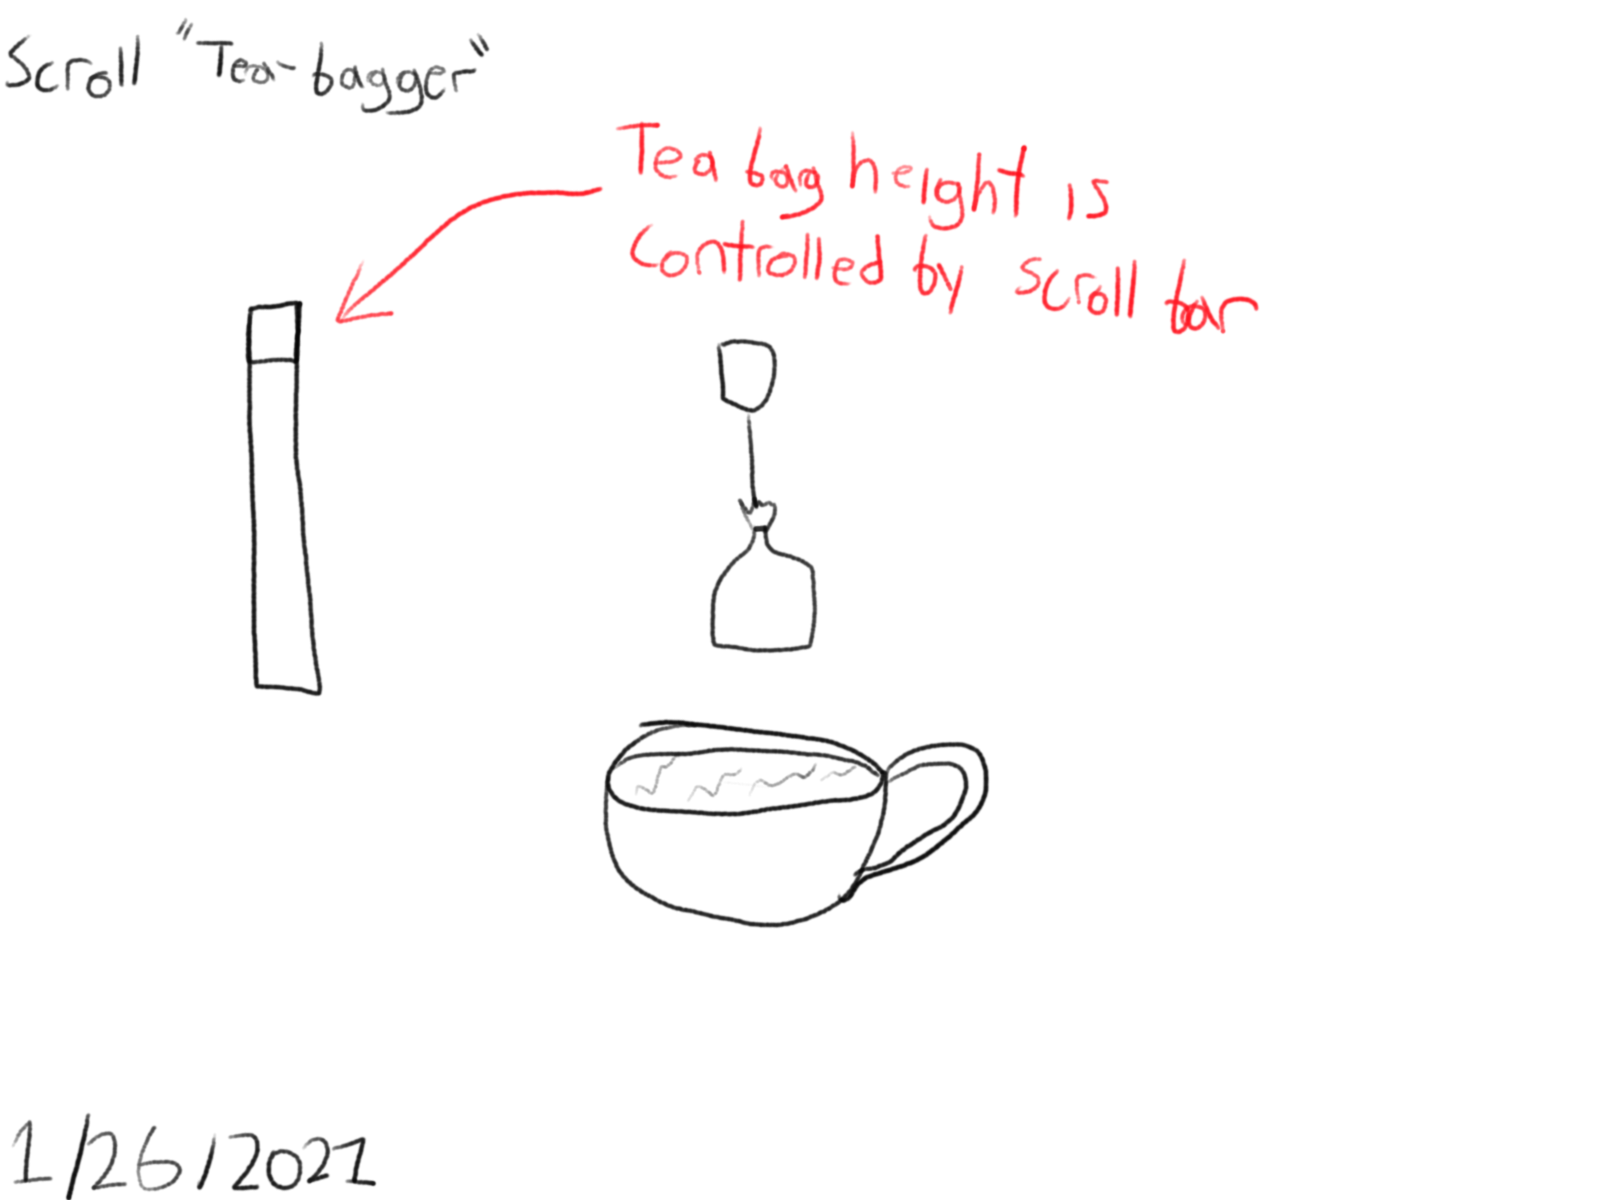 Scroll "Tea-bagger"
Tea bag height is
controlled by scroll bar
1/26/2021